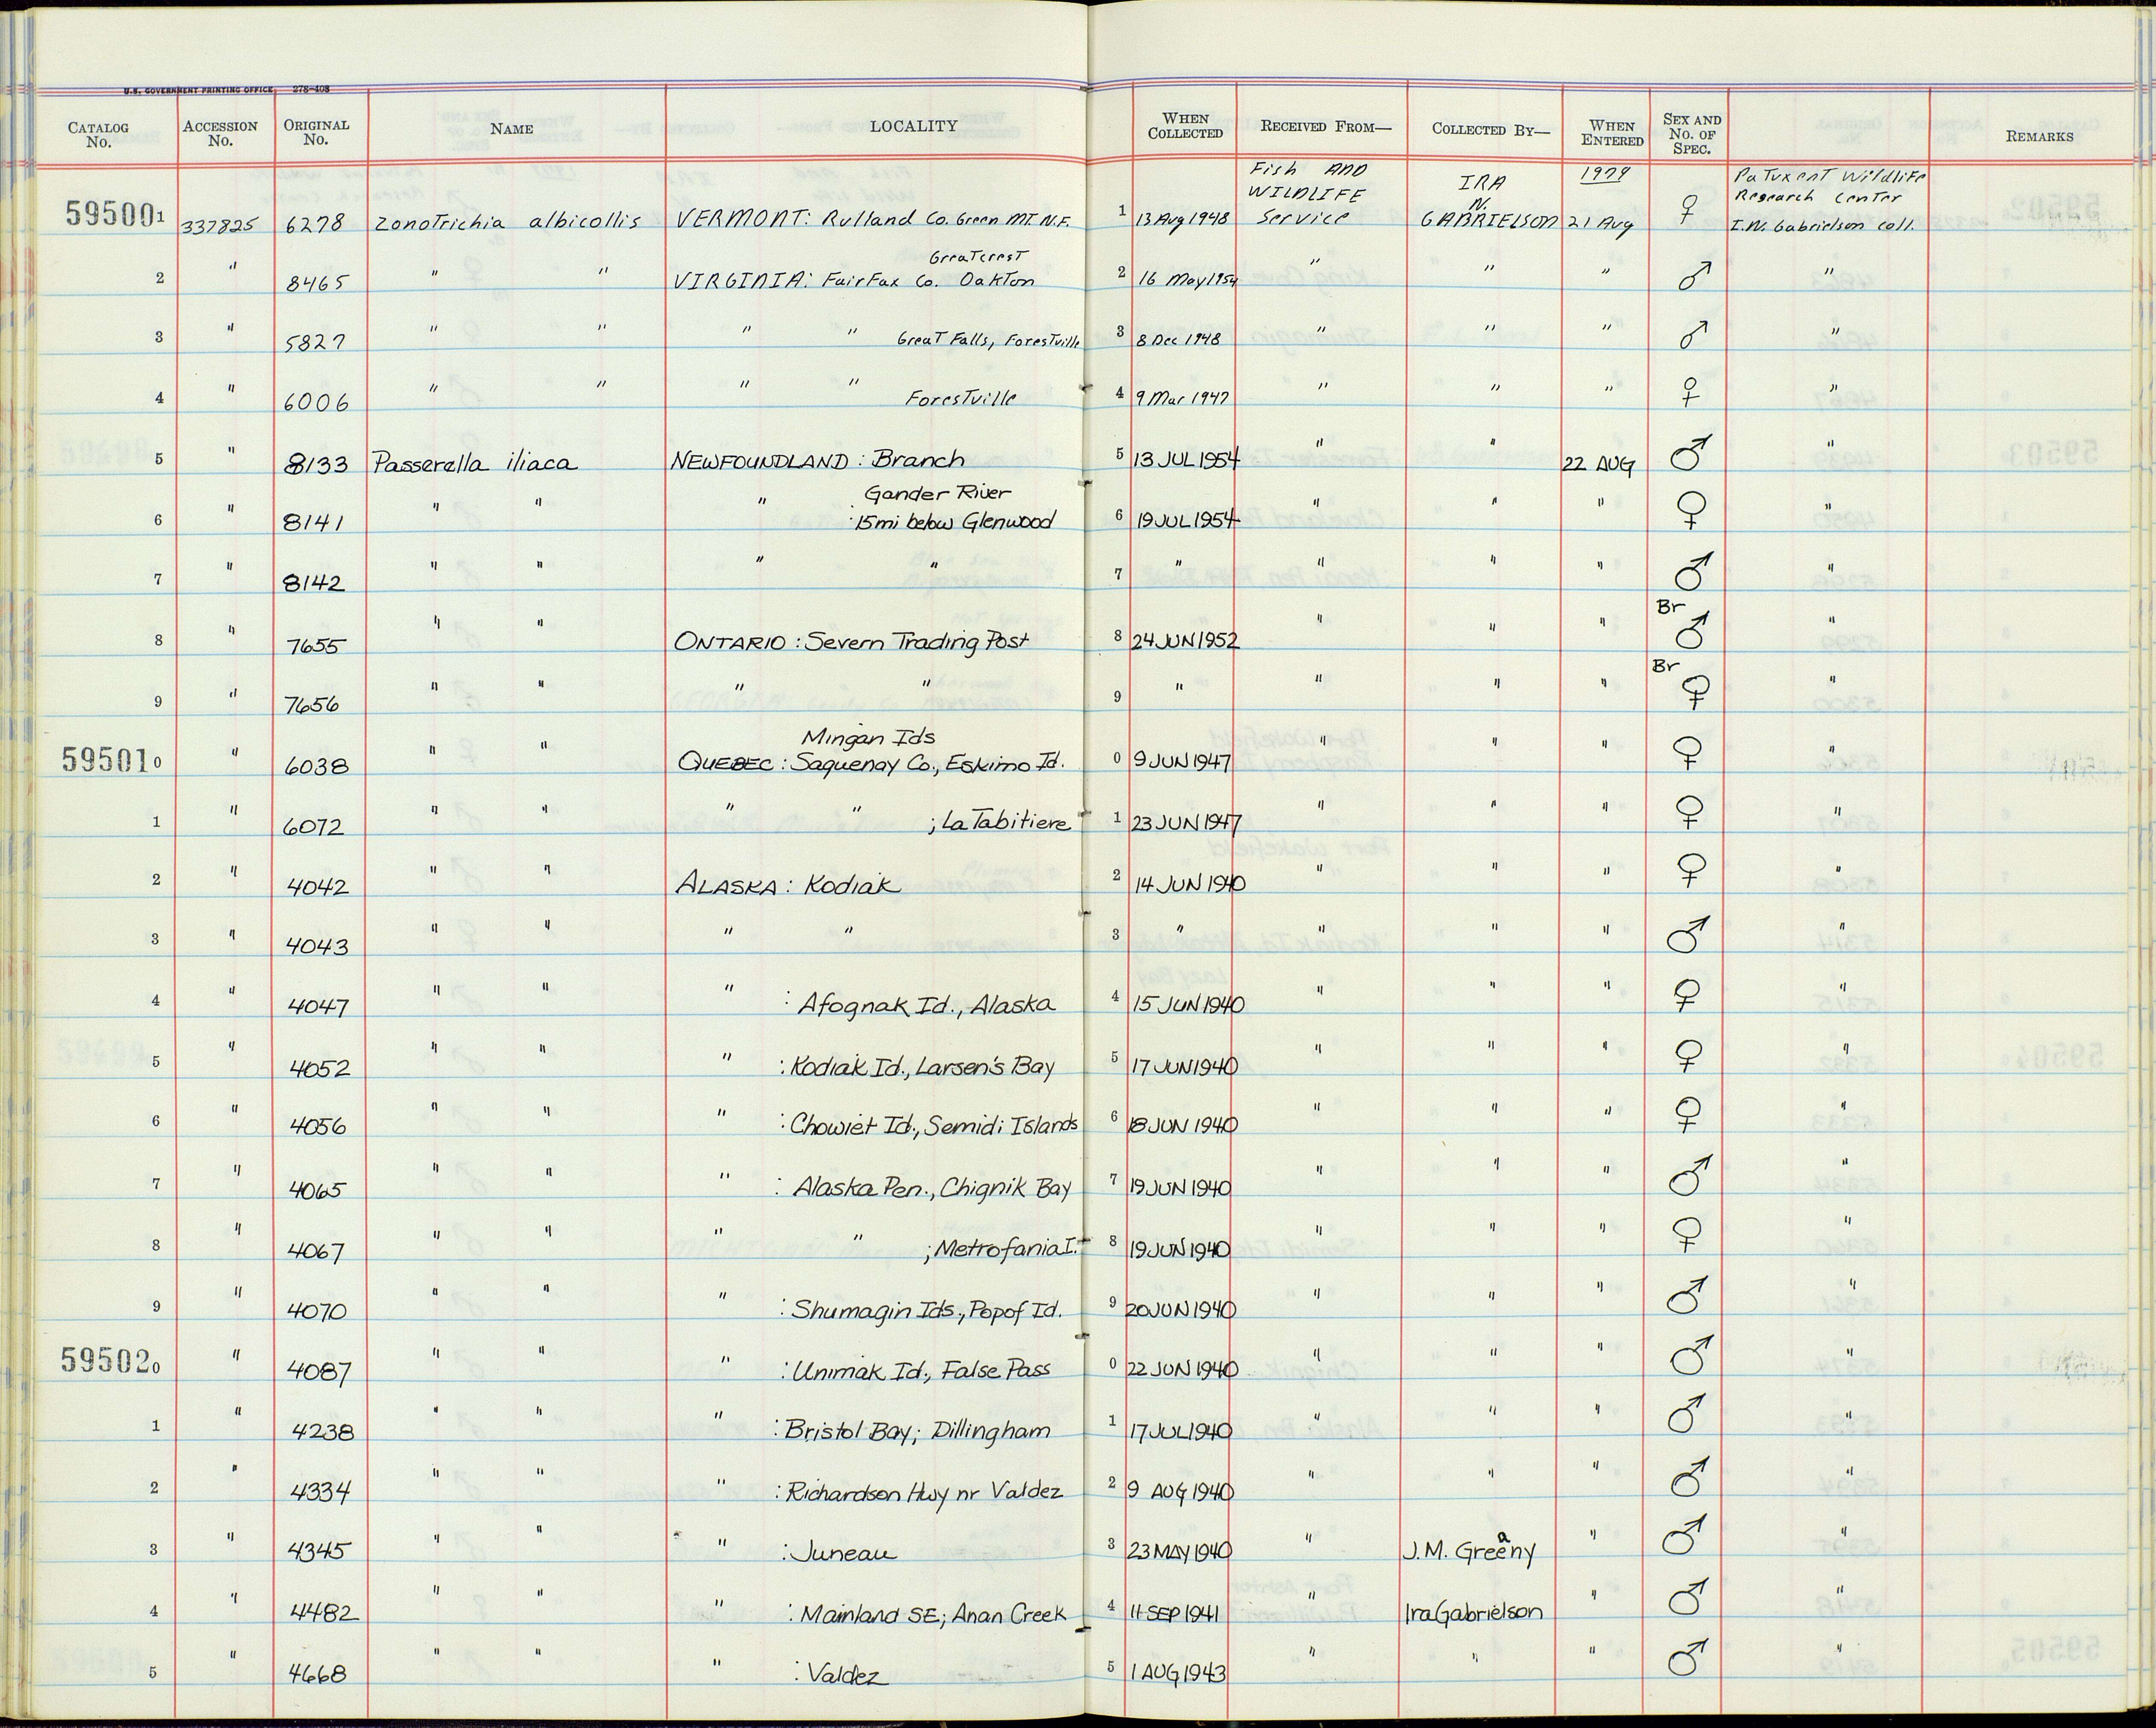 U.S. GOVERNMENT PRINTING OFFICE 278-408
CATALOG No. ACCESSION No. ORIGINAL No. NAME LOCALITY WHEN COLLECTED RECEIVED FROM— COLLECTED BY— WHEN ENTERED SEX AND No. OF SPEC. REMARKS
595001 337825 6278 Zonotrichia albicollis VERMONT: Rulland Co. Green MT. N.F. 1 13 Aug 1948 Fish AND WILDLIFE Service IRA N. GABRIELSON 1979 21 Aug ♀ Patuxent Wildlife Research Center I.N. Gabrielson coll.
2 " 8465 " " VIRGINIA: Fairfax Co. Greatcrest Oakton 2 16 May 1954 " " " ♂ "
3 " 5827 " " " " Great Falls, Forestville 3 8 Dec 1948 " " " ♂ "
4 " 6006 " " " " Forestville 4 9 Mar 1947 " " " ♀ "
5 " 8133 Passerella iliaca NEWFOUNDLAND: Branch 5 13 JUL 1954 " " 22 AUG ♂ "
6 " 8141 " " " : Gander River 15mi below Glenwood 6 19 JUL 1954 " " " ♀ "
7 " 8142 " " " " 7 " " " " ♂ "
8 " 7655 " " ONTARIO: Severn Trading Post 8 24 JUN 1952 " " " Br ♂ "
9 " 7656 " " " " 9 " " " " Br ♀ "
595010 " 6038 " " QUEBEC: Mingan Ids Saquenay Co., Eskimo Id. 0 9 JUN 1947 " " " ♀ "
1 " 6072 " " " " ; La Tabitiere 1 23 JUN 1947 " " " ♀ "
2 " 4042 " " ALASKA: Kodiak 2 14 JUN 1940 " " " ♀ "
3 " 4043 " " " " 3 " " " " ♂ "
4 " 4047 " " " : Afognak Id., Alaska 4 15 JUN 1940 " " " ♀ "
5 " 4052 " " " : Kodiak Id., Larsen's Bay 5 17 JUN 1940 " " " ♀ "
6 " 4056 " " " : Chowiet Id., Semidi Islands 6 18 JUN 1940 " " " ♀ "
7 " 4065 " " " : Alaska Pen., Chignik Bay 7 19 JUN 1940 " " " ♂ "
8 " 4067 " " " " ; Metrofania I. 8 19 JUN 1940 " " " ♀ "
9 " 4070 " " " : Shumagin Ids., Popof Id. 9 20 JUN 1940 " " " ♂ "
595020 " 4087 " " " : Unimak Id., False Pass 0 22 JUN 1940 " " " ♂ "
1 " 4238 " " " : Bristol Bay; Dillingham 1 17 JUL 1940 " " " ♂ "
2 " 4334 " " " : Richardson Hwy nr Valdez 2 9 AUG 1940 " " " ♂ "
3 " 4345 " " " : Juneau 3 23 MAY 1940 " J.M. Greany " ♂ "
4 " 4482 " " " : Mainland SE; Anan Creek 4 11 SEP 1941 " Ira Gabrielson " ♂ "
5 " 4668 " " " : Valdez 5 1 AUG 1943 " " " ♂ "